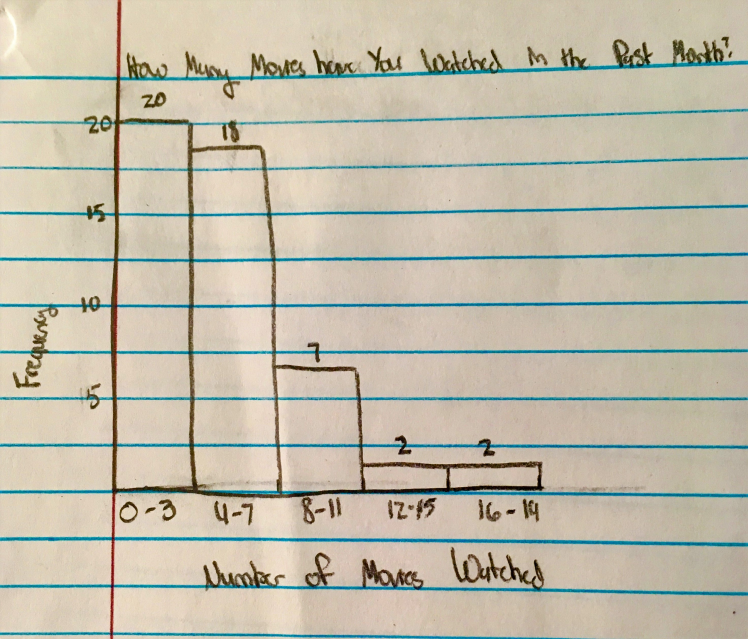 How Many Movies have You Watched in the Past Month?
20
20
18
15
10
7
5
2
2
Frequency
0-3
4-7
8-11
12-15
16-19
Number of Movies Watched